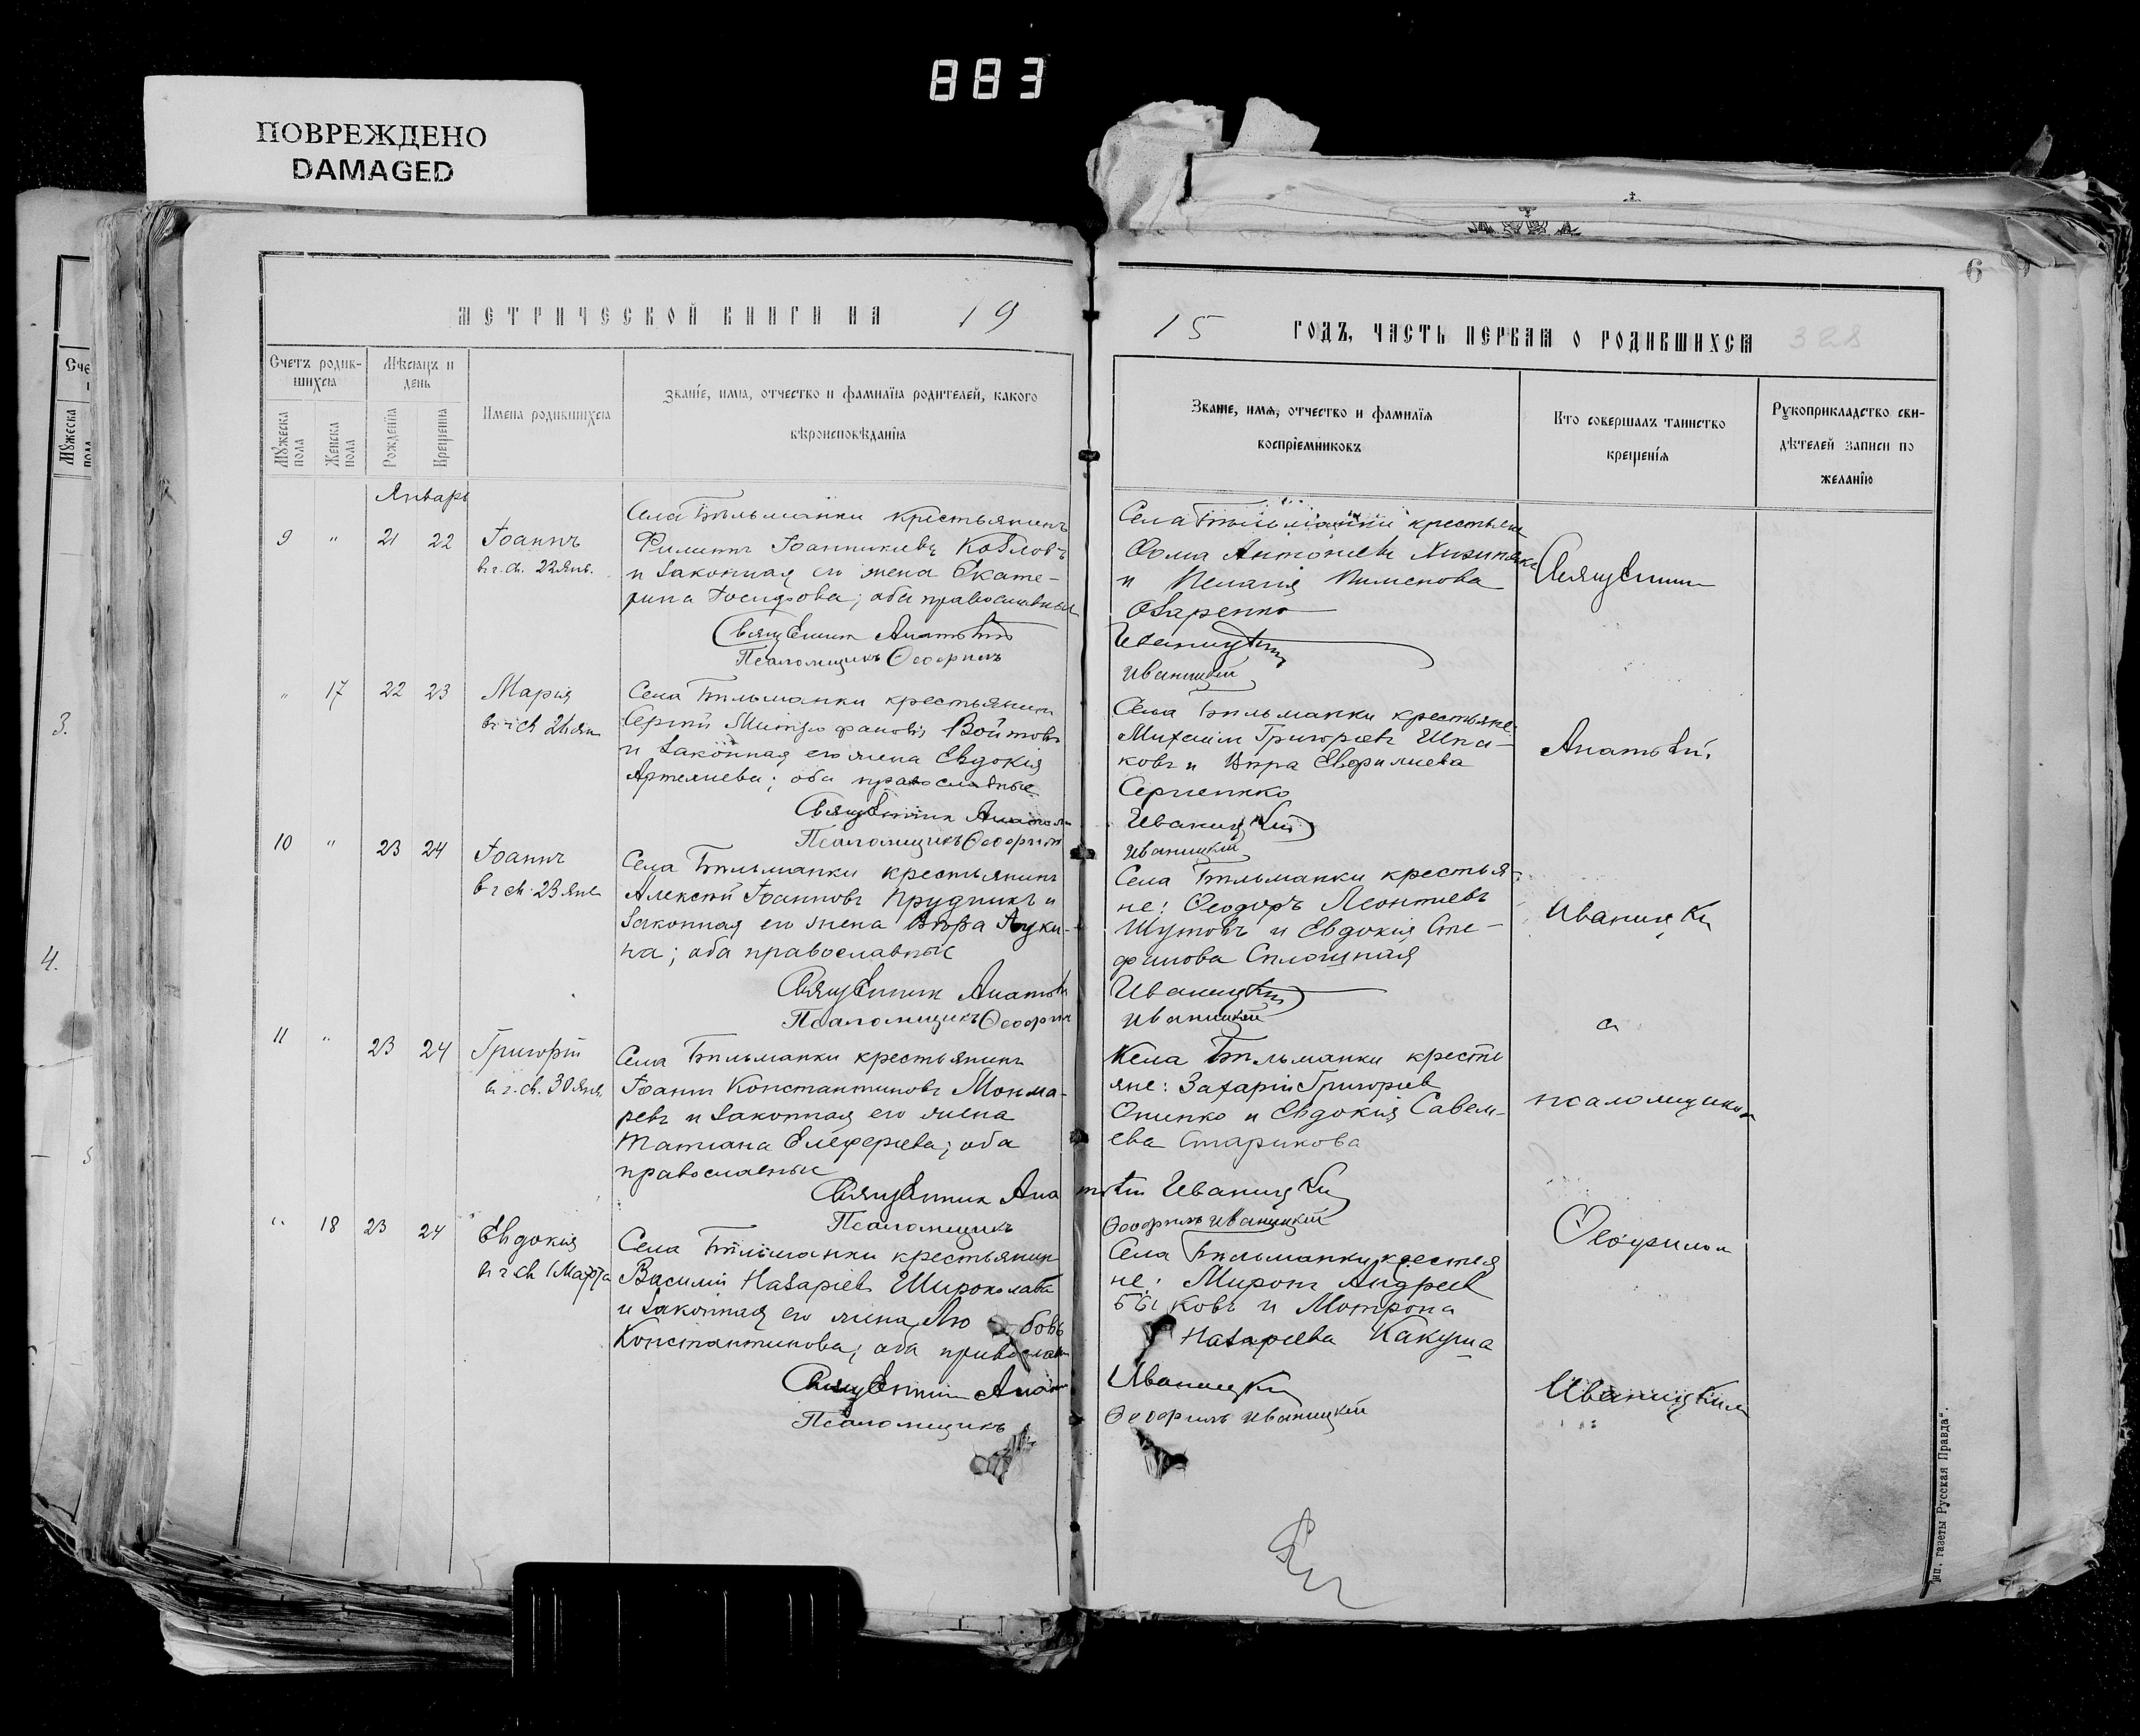 883
ПОВРЕЖДЕНО
DAMAGED
6
МЕТРИЧЕСКОЙ КНИГИ НА 19
15 ГОДЪ, ЧАСТЬ ПЕРВАЯ О РОДИВШИХСЯ 328
Счетъ родив-
шихся
Мѣсяцъ и
день
Мужеска
пола
Женска
пола
Рожденїя
Крещенїя
Имена родившихся
Званїе, имя, отчество и фамилїя родителей, какого
вѣроисповѣданїя
Званїе, имя, отчество и фамилїя
воспрїемниковъ
Кто совершалъ таинство
крещенїя
Рукоприкладство сви-
дѣтелей записи по
желанїю
Январь
9 " 21 22 Іоаннъ
в. г. св. 22 Янв.
Села Бѣльманки крестьянинъ
Филиппъ Іоанникіевъ Козловъ
и законная его жена Екате-
рина Іосифова; оба православные
Священникъ Анатолій
Псаломщикъ Ѳеофилъ
Села Бѣльманки крестьяне
Ѳома Антоніевъ
и Пелагія Пименова
Озаренко
Иваницкій
Иваницкій
Священник
" 17 22 23 Марія
Села Бѣльманки крестьянинъ
Сергій Митрофановъ Войтовъ
и законная его жена Евдокія
Артеміева; оба православные
Священник Анатолій
Псаломщикъ Ѳеофилъ
Села Бѣльманки крестьяне:
Михаилъ Григоріевъ Шпа-
ковъ и Вѣра Евфиміева
Сергіенко
Иваницкій
Иваницкій
Анатолій
10 " 23 24 Іоаннъ
в г св. 23 Янв
Села Бѣльманки крестьянинъ
Алексѣй Іоанновъ Прудникъ и
законная его жена Вѣра Луки-
на; оба православные
Священник Анатолій
Псаломщикъ Ѳеофилъ
Села Бѣльманки крестья-
не: Ѳеодоръ Леонтіевъ
Шутовъ и Евдокія Сте-
фанова Сплошная
Иваницкій
Иваницкій
Иваницкій
с
11 " 23 24 Григорій
в г. св. 30 Янв.
Села Бѣльманки крестьянинъ
Іоаннъ Константиновъ Мокма-
ревъ и законная его жена
Татіана Елеѳеріева; оба
православные
Священник Анатолій Иваницкій
Псаломщикъ Ѳеофилъ Иваницкій
Села Бѣльманки кресть
яне: Захарій Григоріев
Опенко и Евдокія Савель-
ева Старикова
псаломщиком
" 18 23 24 Евдокія
в г св 1 Марта
Села Бѣльманки крестьянин
Василій Назаріев Широколава
и законная его жена Лю бовь
Константинова; оба православн
Священник Анатолій Иваницкій
Псаломщикъ Ѳеофилъ Иваницкій
Села Бѣльманки крестья
не: Миронъ Андреев
Быковъ и Мотрона
Назаріева Какуша
Ѳеофилом
Иваницким
Тип. газеты „Русская Правда“.
3.
4.
5